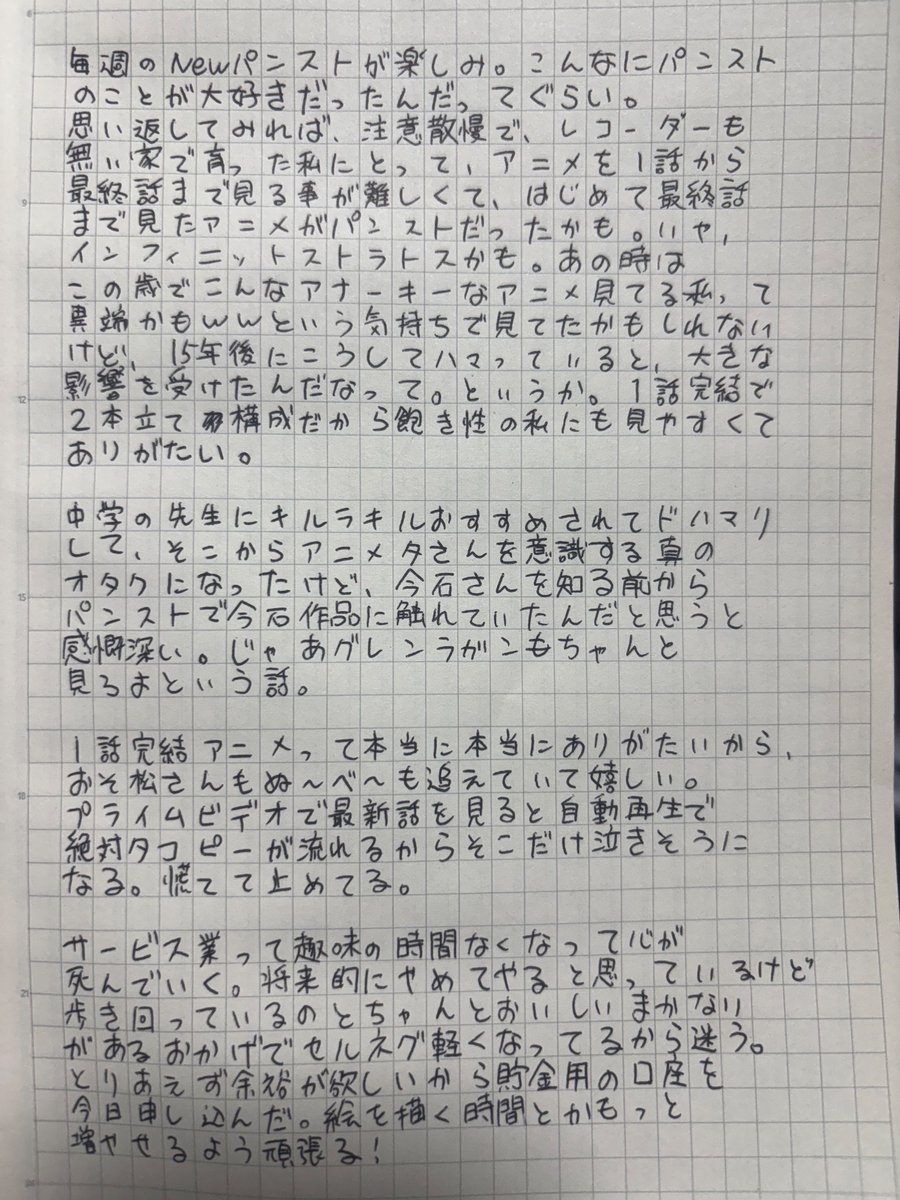 毎週のNewパンストが楽しみ。こんなにパンスト
のことが大好きだったんだってぐらい。
思い返してみれば、注意散慢で、レコーダーも
無い家で育った私にとって、アニメを1話から
最終話まで見る事が難しくて、はじめて最終話
まで見たアニメがパンストだったかも。いや、
インフィニットストラトスかも。あの時は
この歳でこんなアナーキーなアニメ見てる私って
異端かもwwという気持ちで見てたかもしれない
けど、15年後にこうしてハマっていると、大きな
影響を受けたんだなって。というか。1話完結で
2本立て構成だから飽き性の私にも見やすくて
ありがたい。
中学の先生にキルラキルおすすめされてドハマリ
して、そこからアニメタさんを意識する真の
オタクになったけど、今石さんを知る前から
パンストで今石作品に触れていたんだと思うと
感慨深い。じゃあグレンラガンもちゃんと
見ろよという話。
1話完結アニメって本当に本当にありがたいから、
おそ松さんもぬ〜べ〜も追えていて嬉しい。
プライムビデオで最新話を見ると自動再生で
絶対タコピーが流れるからそこだけ泣きそうに
なる。慌てて止めてる。
サービス業って趣味の時間なくなって心が
死んでいく。将来的にやめてやると思っているけど
歩き回っているのとちゃんとおいしいまかない
があるおかげでセルネグ軽くなってるから迷う。
とりあえず余裕が欲しいから貯金用の口座を
今日申し込んだ。絵を描く時間とかもっと
増やせるよう頑張る!